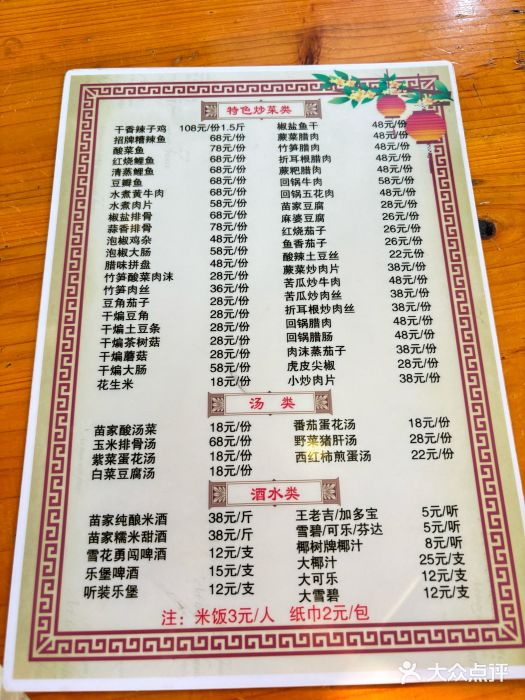 特色炒菜类
干香辣子鸡 108元/份1.5斤
招牌糟辣鱼 68元/份
酸菜鱼 78元/份
红烧鲤鱼 68元/份
清蒸鲤鱼 68元/份
豆瓣鱼 68元/份
水煮黄牛肉 68元/份
水煮肉片 58元/份
椒盐排骨 68元/份
蒜香排骨 78元/份
泡椒鸡杂 48元/份
泡椒大肠 58元/份
腊味拼盘 48元/份
竹笋酸菜肉沫 28元/份
竹笋肉丝 36元/份
豆角茄子 28元/份
干煸豆角 28元/份
干煸土豆条 28元/份
干煸茶树菇 28元/份
干煸蘑菇 28元/份
干煸大肠 58元/份
花生米 18元/份
椒盐鱼干 48元/份
蕨菜腊肉 48元/份
竹笋腊肉 48元/份
折耳根腊肉 48元/份
蕨粑腊肉 48元/份
回锅牛肉 58元/份
回锅五花肉 48元/份
苗家豆腐 28元/份
麻婆豆腐 26元/份
红烧茄子 26元/份
鱼香茄子 26元/份
酸辣土豆丝 22元/份
蕨菜炒肉片 38元/份
苦瓜炒牛肉 48元/份
苦瓜炒肉丝 38元/份
折耳根炒肉丝 38元/份
回锅腊肉 48元/份
回锅腊肠 48元/份
肉沫蒸茄子 38元/份
虎皮尖椒 28元/份
小炒肉片 38元/份
汤 类
苗家酸汤菜 18元/份
玉米排骨汤 68元/份
紫菜蛋花汤 18元/份
白菜豆腐汤 18元/份
番茄蛋花汤 18元/份
野菜猪肝汤 28元/份
西红柿煎蛋汤 22元/份
酒水类
苗家纯酿米酒 38元/斤
苗家糯米甜酒 38元/斤
雪花勇闯啤酒 12元/支
乐堡啤酒 15元/支
听装乐堡 12元/支
王老吉/加多宝 5元/听
雪碧/可乐/芬达 5元/听
椰树牌椰汁 8元/听
大椰汁 25元/支
大可乐 12元/支
大雪碧 12元/支
注：米饭3元/人 纸巾2元/包
大众点评